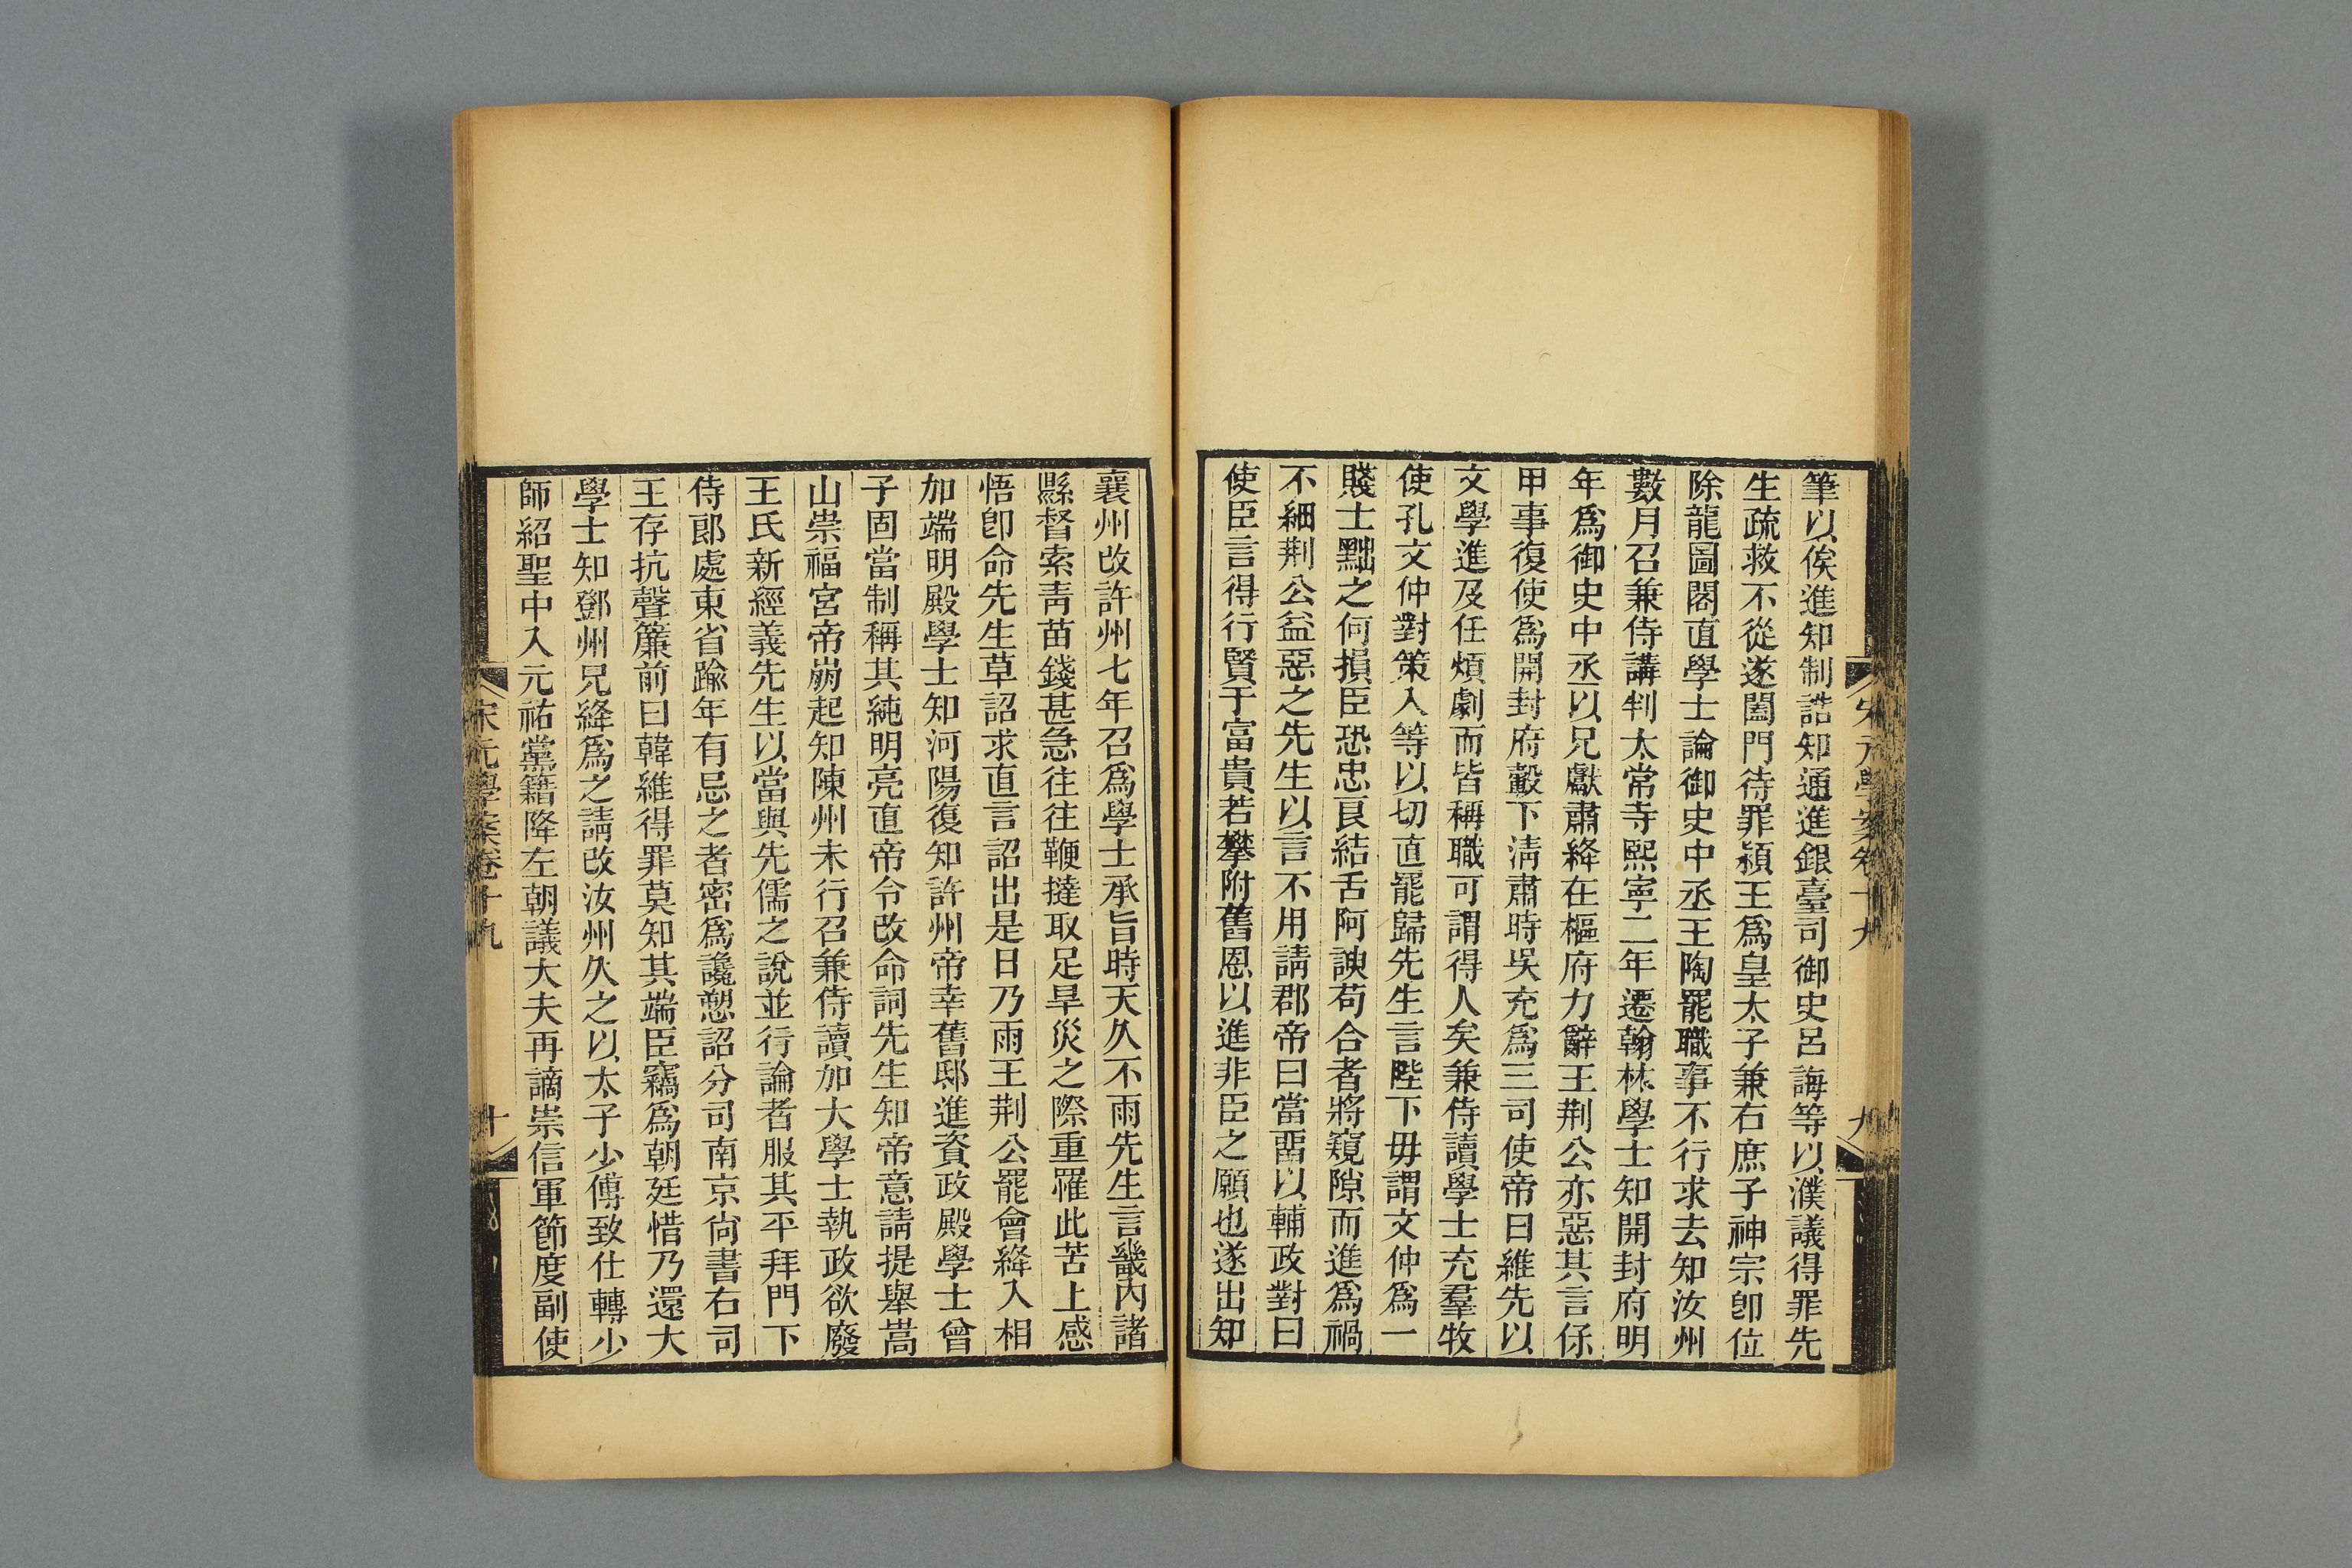 宋元學案卷十九
九
筆以俟進知制誥知通進銀臺司御史呂誨等以濮議得罪先
生疏救不從遂闔門待罪潁王爲皇太子兼右庶子神宗卽位
除龍圖閣直學士論御史中丞王陶罷職事不行求去知汝州
數月召兼侍講判太常寺熙寧二年遷翰林學士知開封府明
年爲御史中丞以兄獻肅絳在樞府力辭王荆公亦惡其言保
甲事復使爲開封府轂下淸肅時吳充爲三司使帝曰維先以
文學進及任煩劇而皆稱職可謂得人矣兼侍讀學士充羣牧
使孔文仲對策入等以切直罷歸先生言陛下毋謂文仲爲一
賤士黜之何損臣恐忠良結舌阿諛苟合者將窺隙而進爲禍
不細荆公益惡之先生以言不用請郡帝曰當畱以輔政對曰
使臣言得行賢于富貴若攀附舊恩以進非臣之願也遂出知
襄州改許州七年召爲學士承旨時天久不雨先生言畿內諸
縣督索靑苗錢甚急往往鞭撻取足旱災之際重罹此苦上感
悟卽命先生草詔求直言詔出是日乃雨王荆公罷會絳入相
加端明殿學士知河陽復知許州帝幸舊邸進資政殿學士曾
子固當制稱其純明亮直帝令改命詞先生知帝意請提舉嵩
山崇福宮帝崩起知陳州未行召兼侍讀加大學士執政欲廢
王氏新經義先生以當與先儒之說並行論者服其平拜門下
侍郎處東省踰年有忌之者密爲讒愬詔分司南京尙書右司
王存抗聲簾前曰韓維得罪莫知其端臣竊爲朝廷惜乃還大
學士知鄧州兄絳爲之請改汝州久之以太子少傅致仕轉少
師紹聖中入元祐黨籍降左朝議大夫再謫崇信軍節度副使
宋元學案卷十九
十